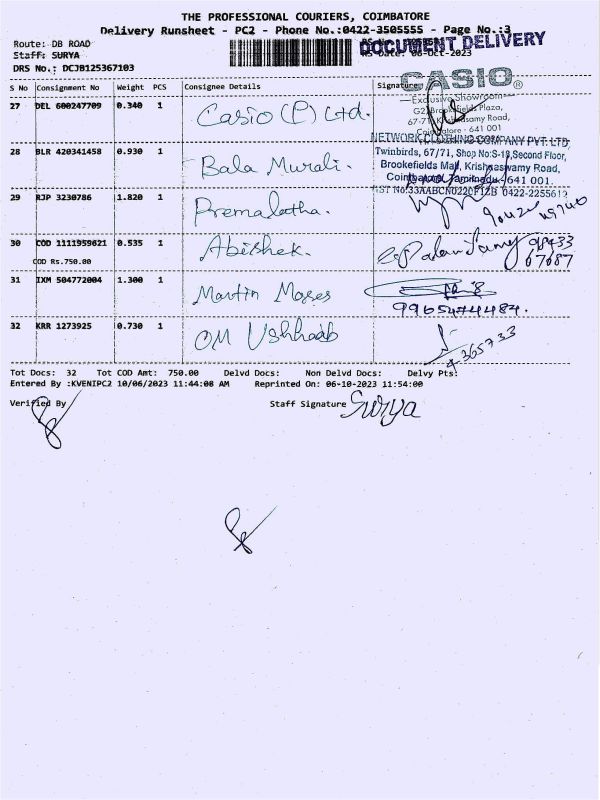 THE PROFESSIONAL COURIERS, COIMBATORE
Delivery Runsheet - PC2 - Phone No.:0422-3505555 - Page No.:3
Route: DB ROAD
DOCUMENT DELIVERY
Staff: SURYA
RS Date: 06-Oct-2023
DRS No.: DCJB125367103
CASIO®
S No Consignment No Weight PCS Consignee Details Signature
Exclusive Showroom
27 DEL 600247709 0.340 1 Casio (P) Ltd.
G2, Brookefields Plaza,
67-71, Krishnasamy Road,
Coimbatore - 641 001
NETWORK CLOTHING COMPANY PVT. LTD,
28 BLR 420341458 0.930 1 Bala Murali.
Twinbirds, 67/71, Shop No:S-19,Second Floor,
Brookefields Mall, Krishnaswamy Road,
Coimbatore, Tamilnadu - 641 001.
29 RJP 3230786 1.820 1 Premalatha.
GST No:33AABCN0220F1ZB 0422-2255612
30 COD 1111959621 0.535 1 Abishek. 98433
COD Rs.750.00 67687
31 IXM 504772004 1.300 1 Martin Moses
9965474484.
32 KRR 1273925 0.730 1 OM
Tot Docs: 32 Tot COD Amt: 750.00 Delvd Docs: Non Delvd Docs: Delvy Pts:
Entered By :KVENIPC2 10/06/2023 11:44:08 AM Reprinted On: 06-10-2023 11:54:00
Verified By Staff Signature Surya